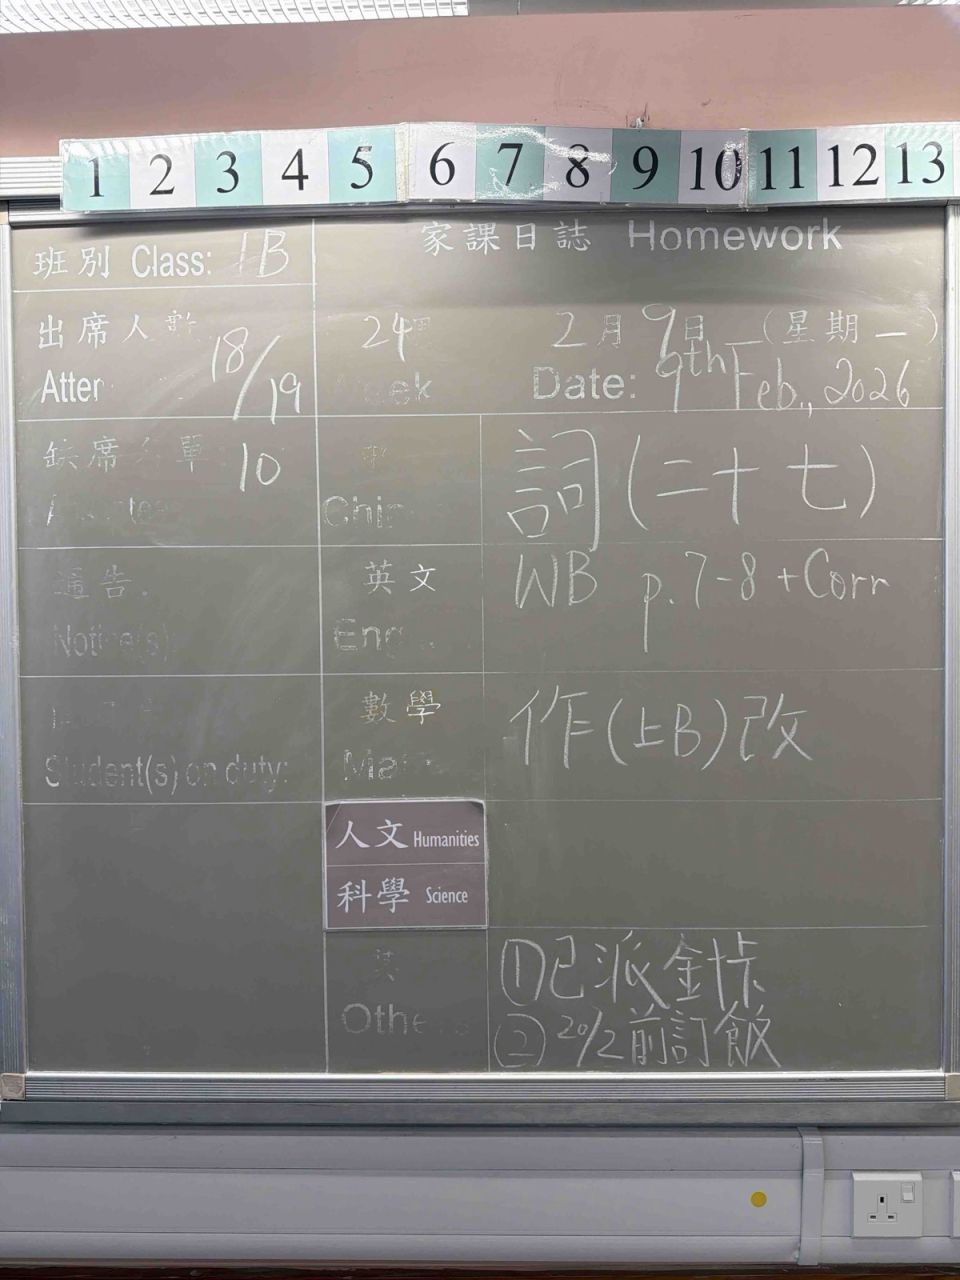 1 2 3 4 5 6 7 8 9 10 11 12 13
班別 Class: 1B
家課日誌 Homework
出席人數
Atten
18/19
24
Week
2月9日 (星期一)
Date: 9th Feb., 2026
缺席名單: 10
Absentee
中
Chin
詞(二十七)
通告:
Notice(s)
英文
Eng
WB p.7-8 +Corr
Student(s) on duty:
數學
Mat
作(上B)改
人文 Humanities
科學 Science
其
Othe
①已派金卡
②20/2前訂飯